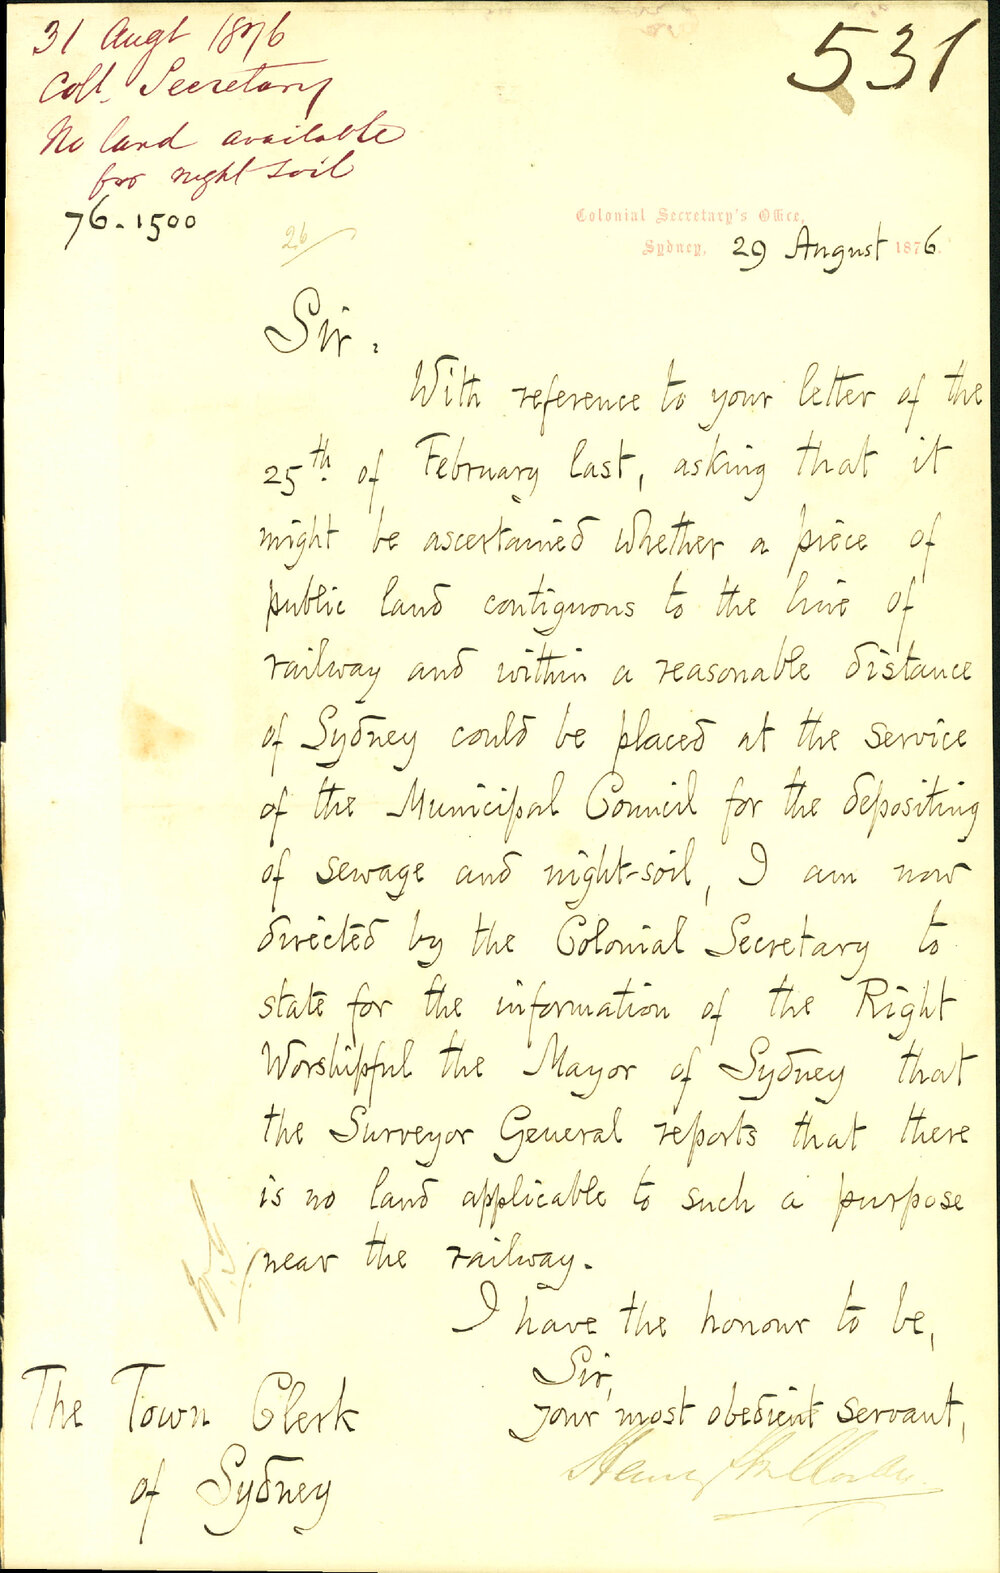 31 Augt 1876
Coll. Secretary
No land available
for night soil
76.1500
531
26
Colonial Secretary's Office,
Sydney, 29 August 1876.
Sir.
With reference to your letter of the
25th. of February last, asking that it
might be ascertained whether a piece of
public land contiguous to the line of
railway and within a reasonable distance
of Sydney could be placed at the service
of the Municipal Council for the depositing
of sewage and night-soil, I am now
directed by the Colonial Secretary to
state for the information of the Right
Worshipful the Mayor of Sydney that
the Surveyor General reports that there
is no land applicable to such a purpose
near the railway.
I have the honour to be,
Sir,
your most obedient servant,
Henry Halloran
The Town Clerk
of Sydney